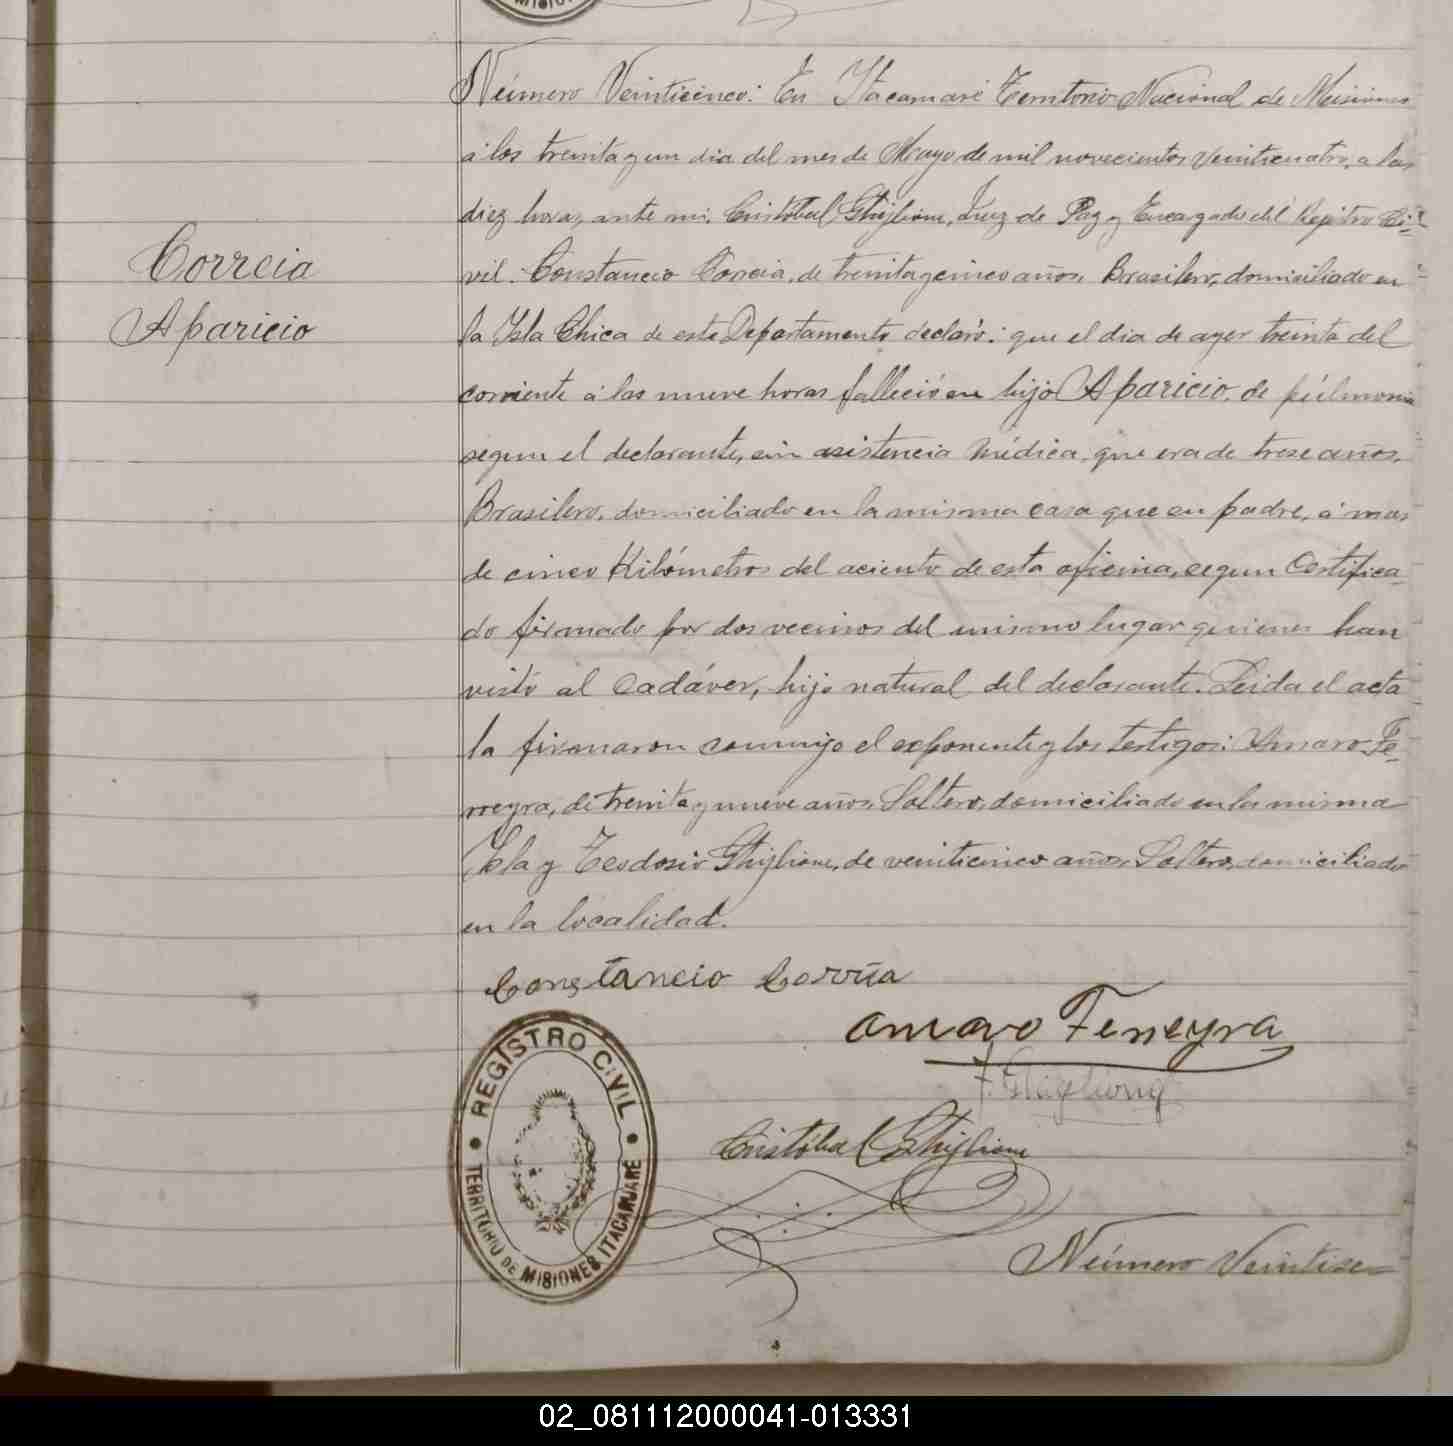 MISION
Número Veinticinco: En Itacaruaré Territorio Nacional de Misiones
á los treinta y un dia del mes de Mayo de mil novecientos veinticuatro, a las
diez horas, ante mi, Cristóbal Ghiglione, Juez de Paz y Encargado del Registro Ci-
vil: Constancio Correia, de treinta y cinco años, Brasilero, domiciliado en
Correia
la Isla Chica de este Departamento declaró: que el dia de ayer treinta del
Aparicio
corriente á las nueve horas falleció su hijo Aparicio, de púlmonia
segun el declarante, sin asistencia médica, que era de trese años,
Brasilero, domiciliado en la misma casa que su padre, á mas
de cinco Kilómetros del aciento de esta oficina, segun Certifica-
do firmado por dos vecinos del mismo lugar quienes han
visto al Cadáver, hijo natural del declarante. Leida el acta
la firmaron conmigo el exponente y los testigos: Amaro Fe-
rreyra, de treinta y nueve años, Soltero, domiciliado en la misma
Isla y Teodosio Ghiglione, de veinticinco años, Soltero, domiciliado
en la localidad.
Constancio Correia
Amaro Ferreyra
T. Ghiglione
REGISTRO CIVIL
TERRITORIO DE MISIONES ITACARUARÉ
Cristóbal Ghiglione
Número Veintise-
02_081112000041-013331